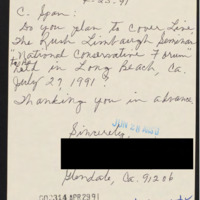 4-23-91
C. Span:
Do you plan to cover Live,
The Rush Limbaugh Seminar
"National Conservative Forum"
to be held in Long Beach, Ca.
July 27 1991
Thanking you in advance,
Sincerely,
JUN 28 AM9
Glendale, Ca. 91206
000314 APR2991